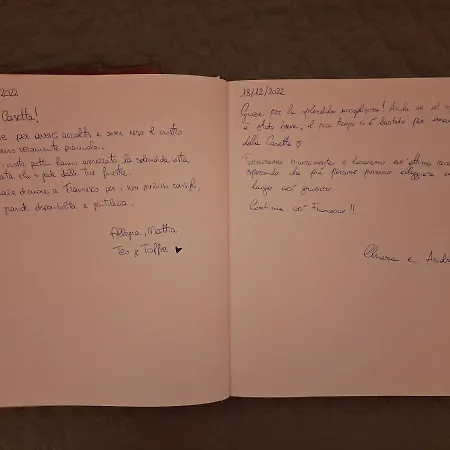 /2022
Casetta!
e per averci accolto e aver reso il nostro
veramente piacevole.
nostri pelosi hanno annusato la splendida vista
che si gode dalle tue finestre.
ancora a Francesco per i suoi preziosi consigli,
grande disponibilità e gentilezza.
Allegra, Mattia
Teo & Toffee ♥
18/12/2022
Grazie per la splendida accoglienza! Anche se il
è stato breve, il suo tempo ci è bastato per
della Casetta
Torneremo sicuramente e lasceremo un'ottima
sperando che più persone possano scegliere un
luogo così grazioso
Continua così Francesco!!
Chiara e